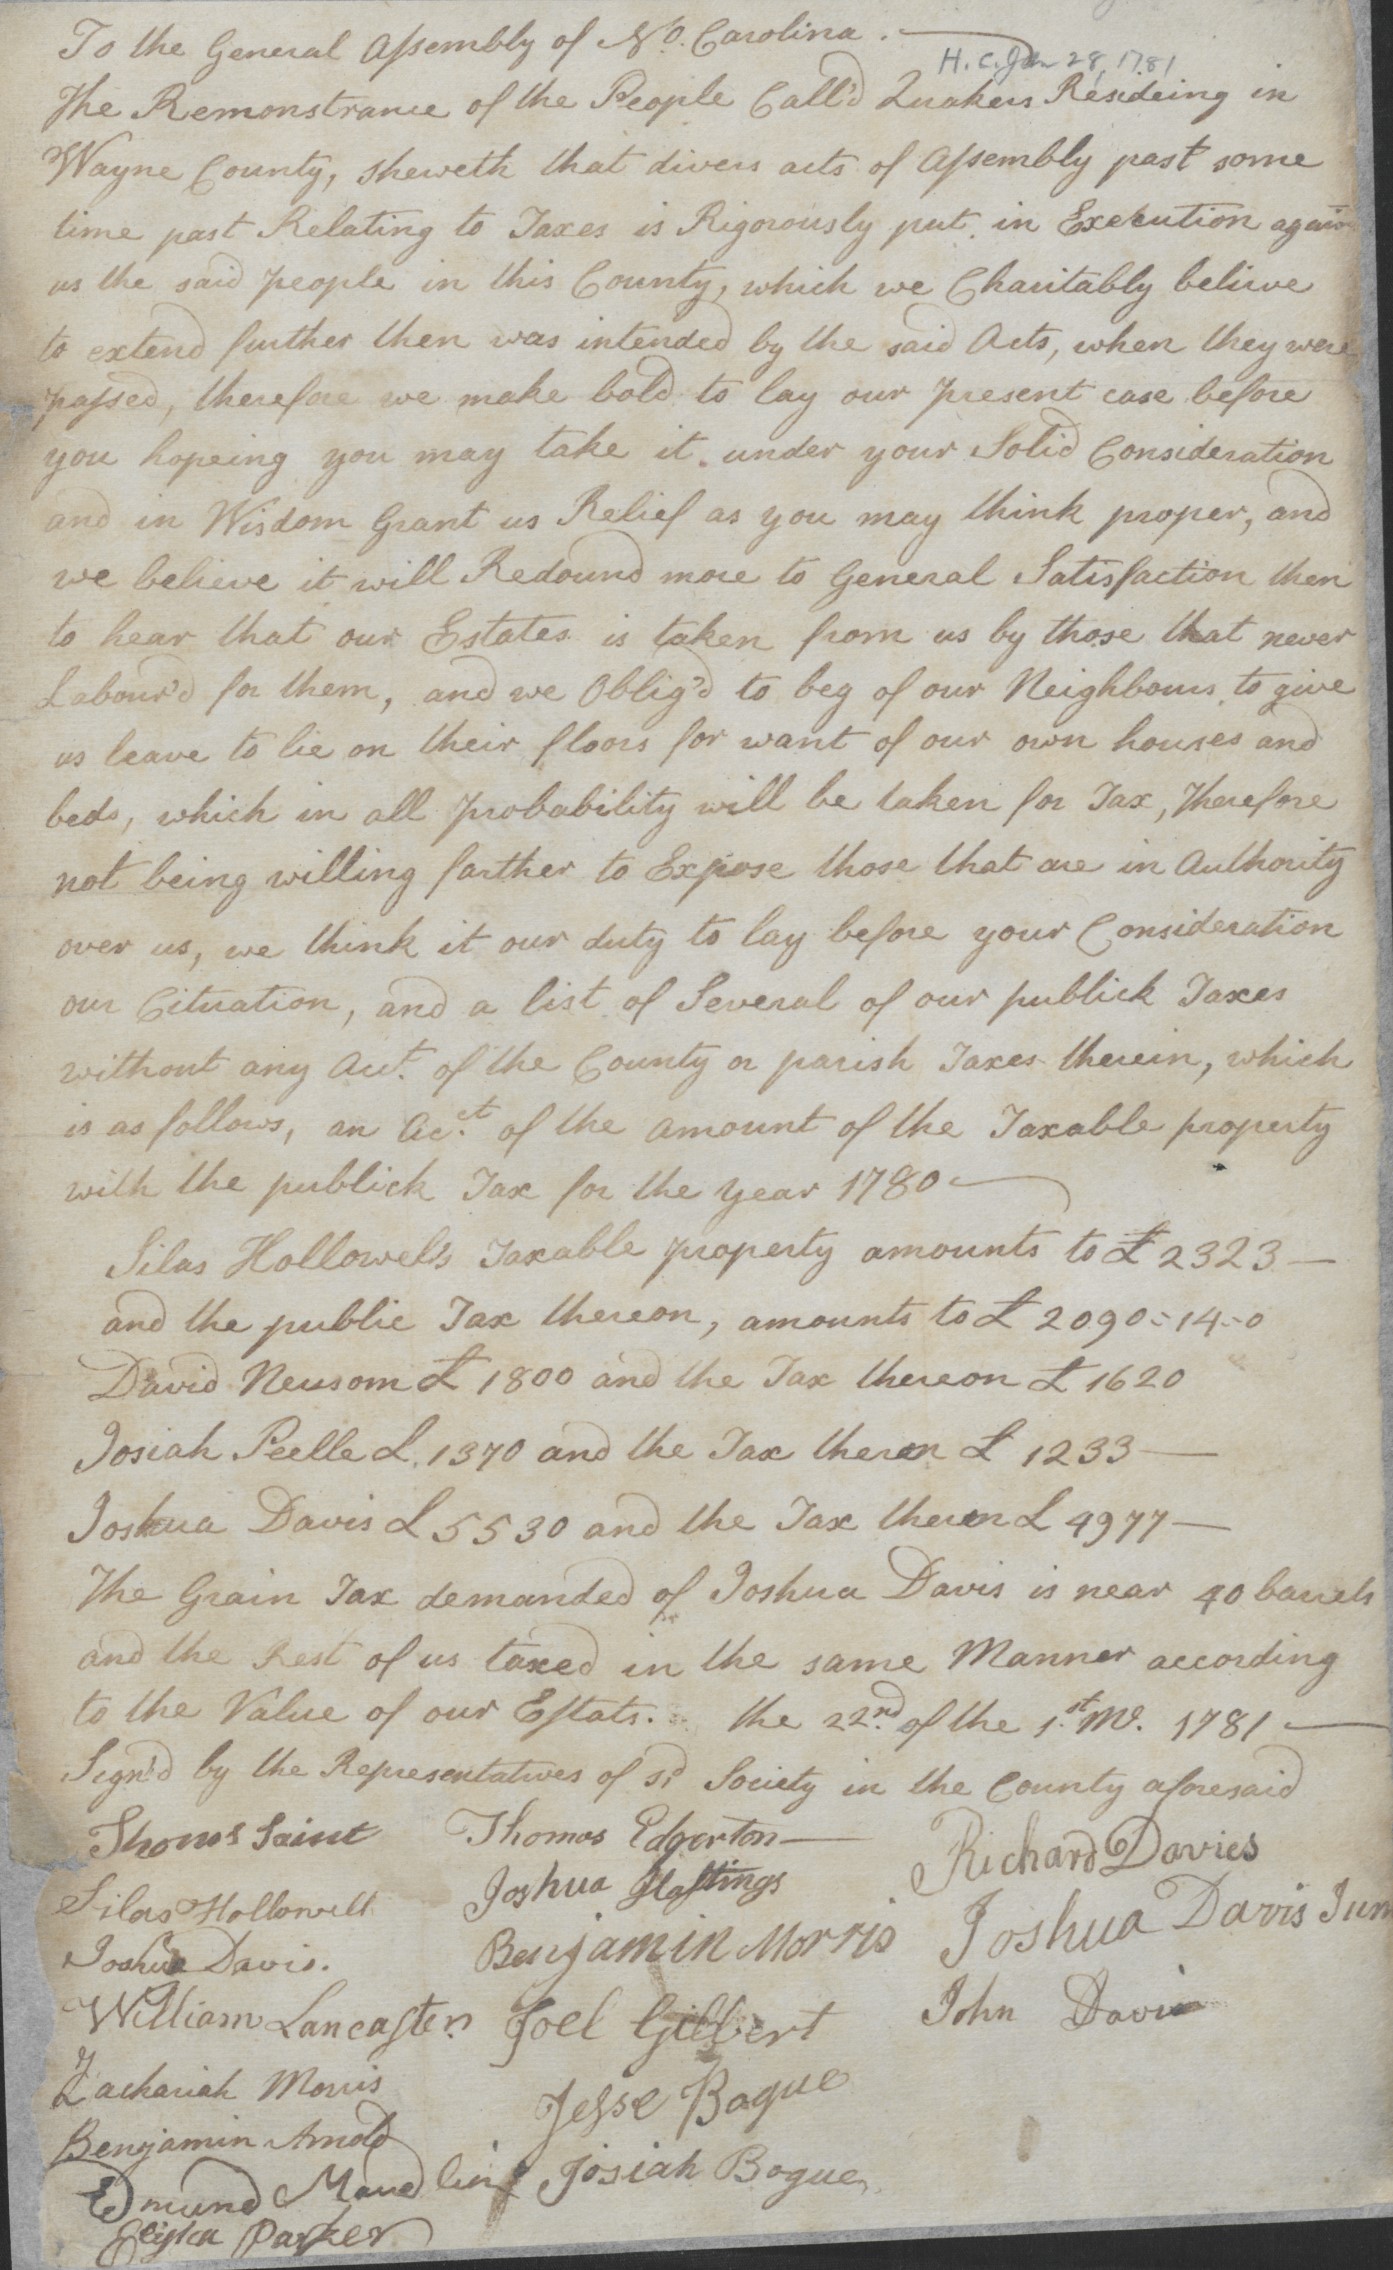 To the General Assembly of No. Carolina.
H.C. Jan 28, 1781
The Remonstrance of the People Call'd Quakers Resideing in
Wayne County, sheweth that divers acts of Assembly past some
time past Relating to Taxes is Rigorously put in Execution again
us the said people in this County, which we Charitably believe
to extend further then was intended by the said Acts, when they were
passed, therefore we make bold to lay our present case before
you hopeing you may take it under your Solid Consideration
and in Wisdom Grant us Relief as you may think proper, and
we believe it will Redound more to General Satisfaction then
to hear that our Estates is taken from us by those that never
Labour'd for them, and we Oblig'd to beg of our Neighbours to give
us leave to lie on their floors for want of our own houses and
beds, which in all probability will be taken for Tax, Therefore
not being willing farther to Expose those that are in Authority
over us, we think it our duty to lay before your Consideration
our Cituation, and a list of Several of our publick Taxes
without any Acct. of the County or parish Taxes therein, which
is as follows, an Acct. of the amount of the Taxable property
with the publick Tax for the year 1780
Silas Hollowel's Taxable property amounts to £ 2323 —
and the public Tax thereon, amounts to £ 2090=14=0
David Newsom £ 1800 and the Tax thereon £ 1620
Josiah Peelle £ 1370 and the Tax theron £ 1233 —
Joshua Davis £ 5530 and the Tax theron £ 4977 —
The Grain Tax demanded of Joshua Davis is near 40 barrels
and the Rest of us taxed in the same Manner according
to the Value of our Estats. the 22nd. of the 1st. Mo. 1781 —
Sign'd by the Representatives of sd Society in the County aforesaid
Thoms Saint Thomas Edgerton — Richard Davies
Silas Hollowell Joshua Hastings Joshua Davis Jun
Joshua Davis. Benjamin Morris John Davis
William Lancaster. Joel Gilbert
Zachariah Morris Jesse Bogue
Benjamin Arnold Josiah Bogue
Edmund Maudlin
Elijha Parker